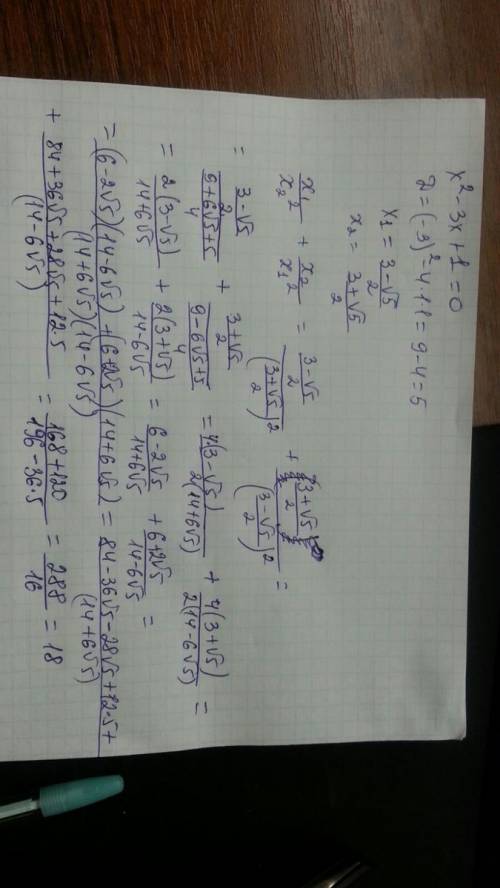 x² - 3x + 1 = 0
D = (-3)² - 4·1·1 = 9 - 4 = 5
x₁ = (3 - √5)/2
x₂ = (3 + √5)/2
x₁/x₂² + x₂/x₁² = ((3 - √5)/2)/((3 + √5)/2)² + ((3 + √5)/2)/((3 - √5)/2)² =
= ((3 - √5)/2)/((9 + 6√5 + 5)/4) + ((3 + √5)/2)/((9 - 6√5 + 5)/4) = 4(3 - √5)/2(14 + 6√5) + 4(3 + √5)/2(14 - 6√5) =
= 2(3 - √5)/(14 + 6√5) + 2(3 + √5)/(14 - 6√5) = (6 - 2√5)/(14 + 6√5) + (6 + 2√5)/(14 - 6√5) =
= ((6 - 2√5)(14 - 6√5) + (6 + 2√5)(14 + 6√5))/((14 + 6√5)(14 - 6√5)) = (84 - 36√5 - 28√5 + 12·5 +)/(14 + 6√5)
(+ 84 + 36√5 + 28√5 + 12·5)/(14 - 6√5) = (168 + 120)/(196 - 36·5) = 288/16 = 18